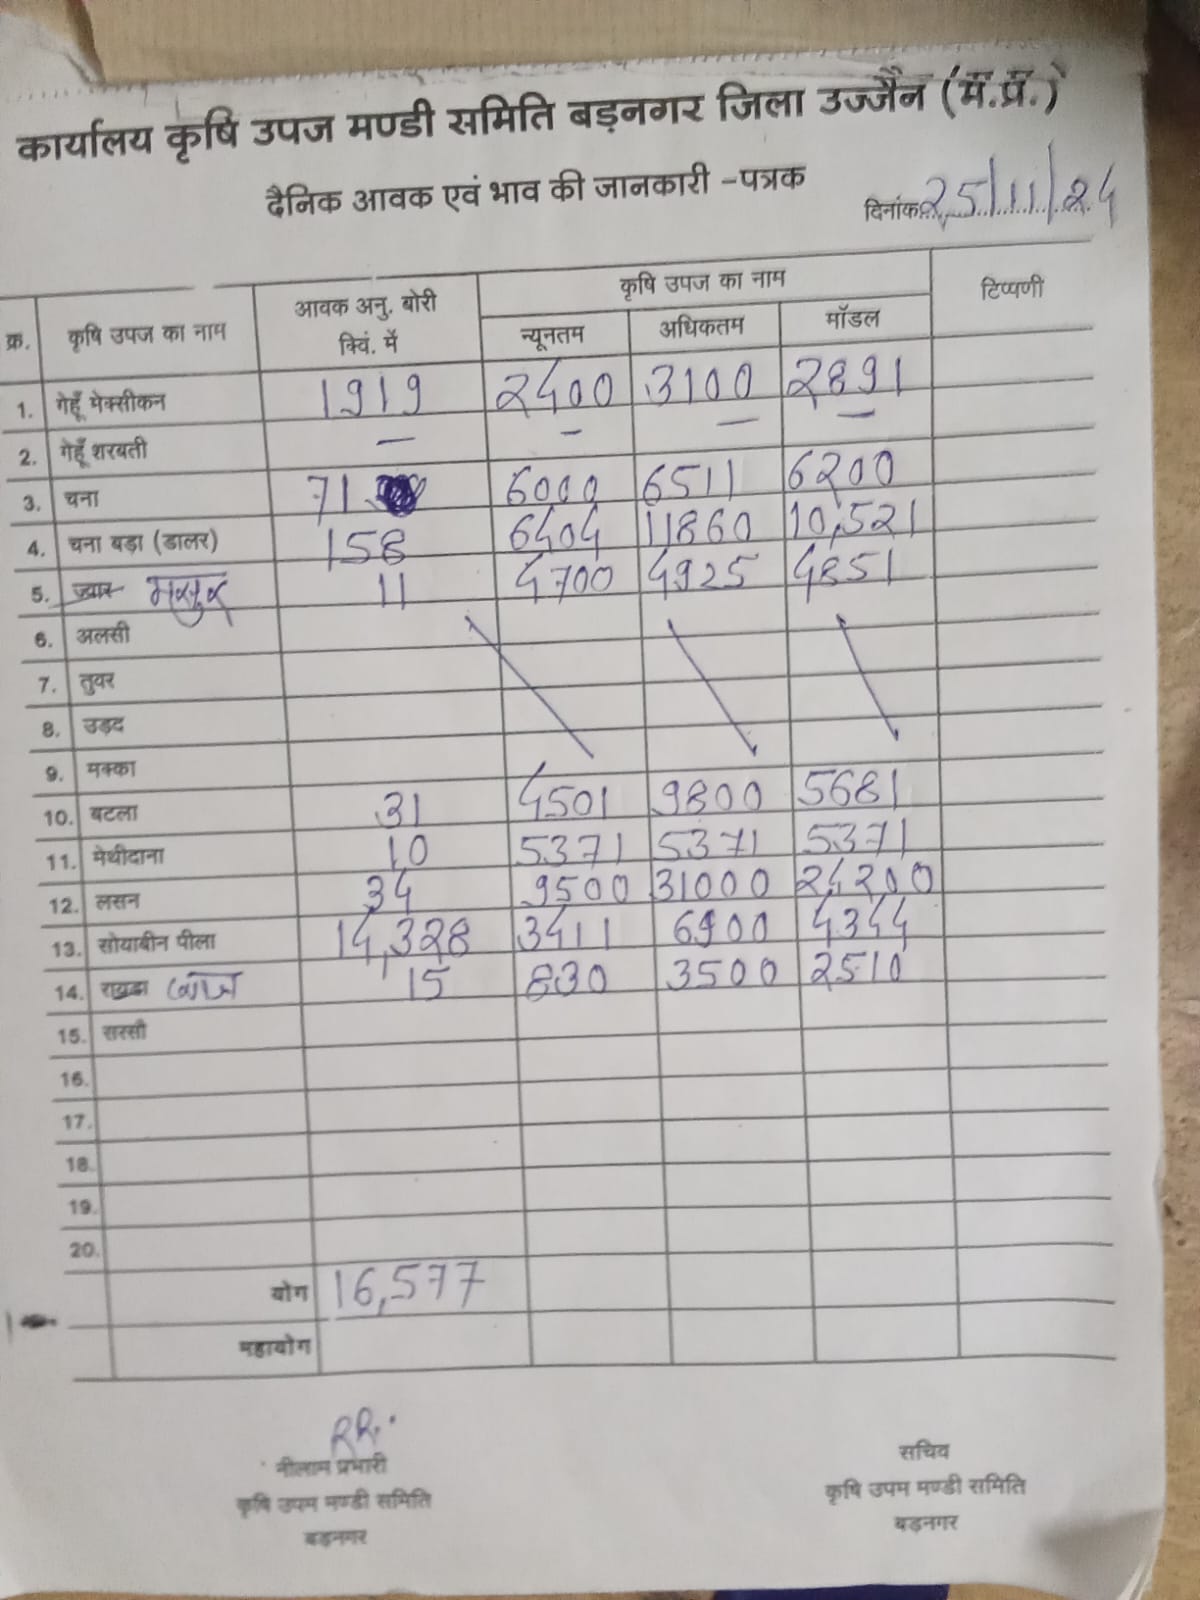 कार्यालय कृषि उपज मण्डी समिति बड़नगर जिला उज्जैन (म.प्र.)
दैनिक आवक एवं भाव की जानकारी -पत्रक
दिनांक 25/11/24
क्र. कृषि उपज का नाम आवक अनु. बोरी क्विं. में कृषि उपज का नाम टिप्पणी
न्यूनतम अधिकतम मॉडल
1. गेहूँ मेक्सीकन 1919 2400 3100 2891
2. गेहूँ शरबती — — — —
3. चना 71 6000 6511 6200
4. चना बड़ा (डालर) 158 6404 11860 10,521
5. ज्वार मसुर 11 4700 4925 4851
6. अलसी
7. तुवर
8. उड़द
9. मक्का
10. बटला 31 4501 9800 5681
11. मेथीदाना 10 5371 5371 5371
12. लसन 34 9500 31000 24200
13. सोयाबीन पीला 14,328 3411 6900 4344
14. रायडा 15 830 3500 2510
15. सरसी
16.
17.
18.
19.
20.
योग 16,577
महायोग
RR.
नीलाम प्रभारी
कृषि उपम मण्डी समिति
बड़नगर
सचिव
कृषि उपम मण्डी समिति
बड़नगर